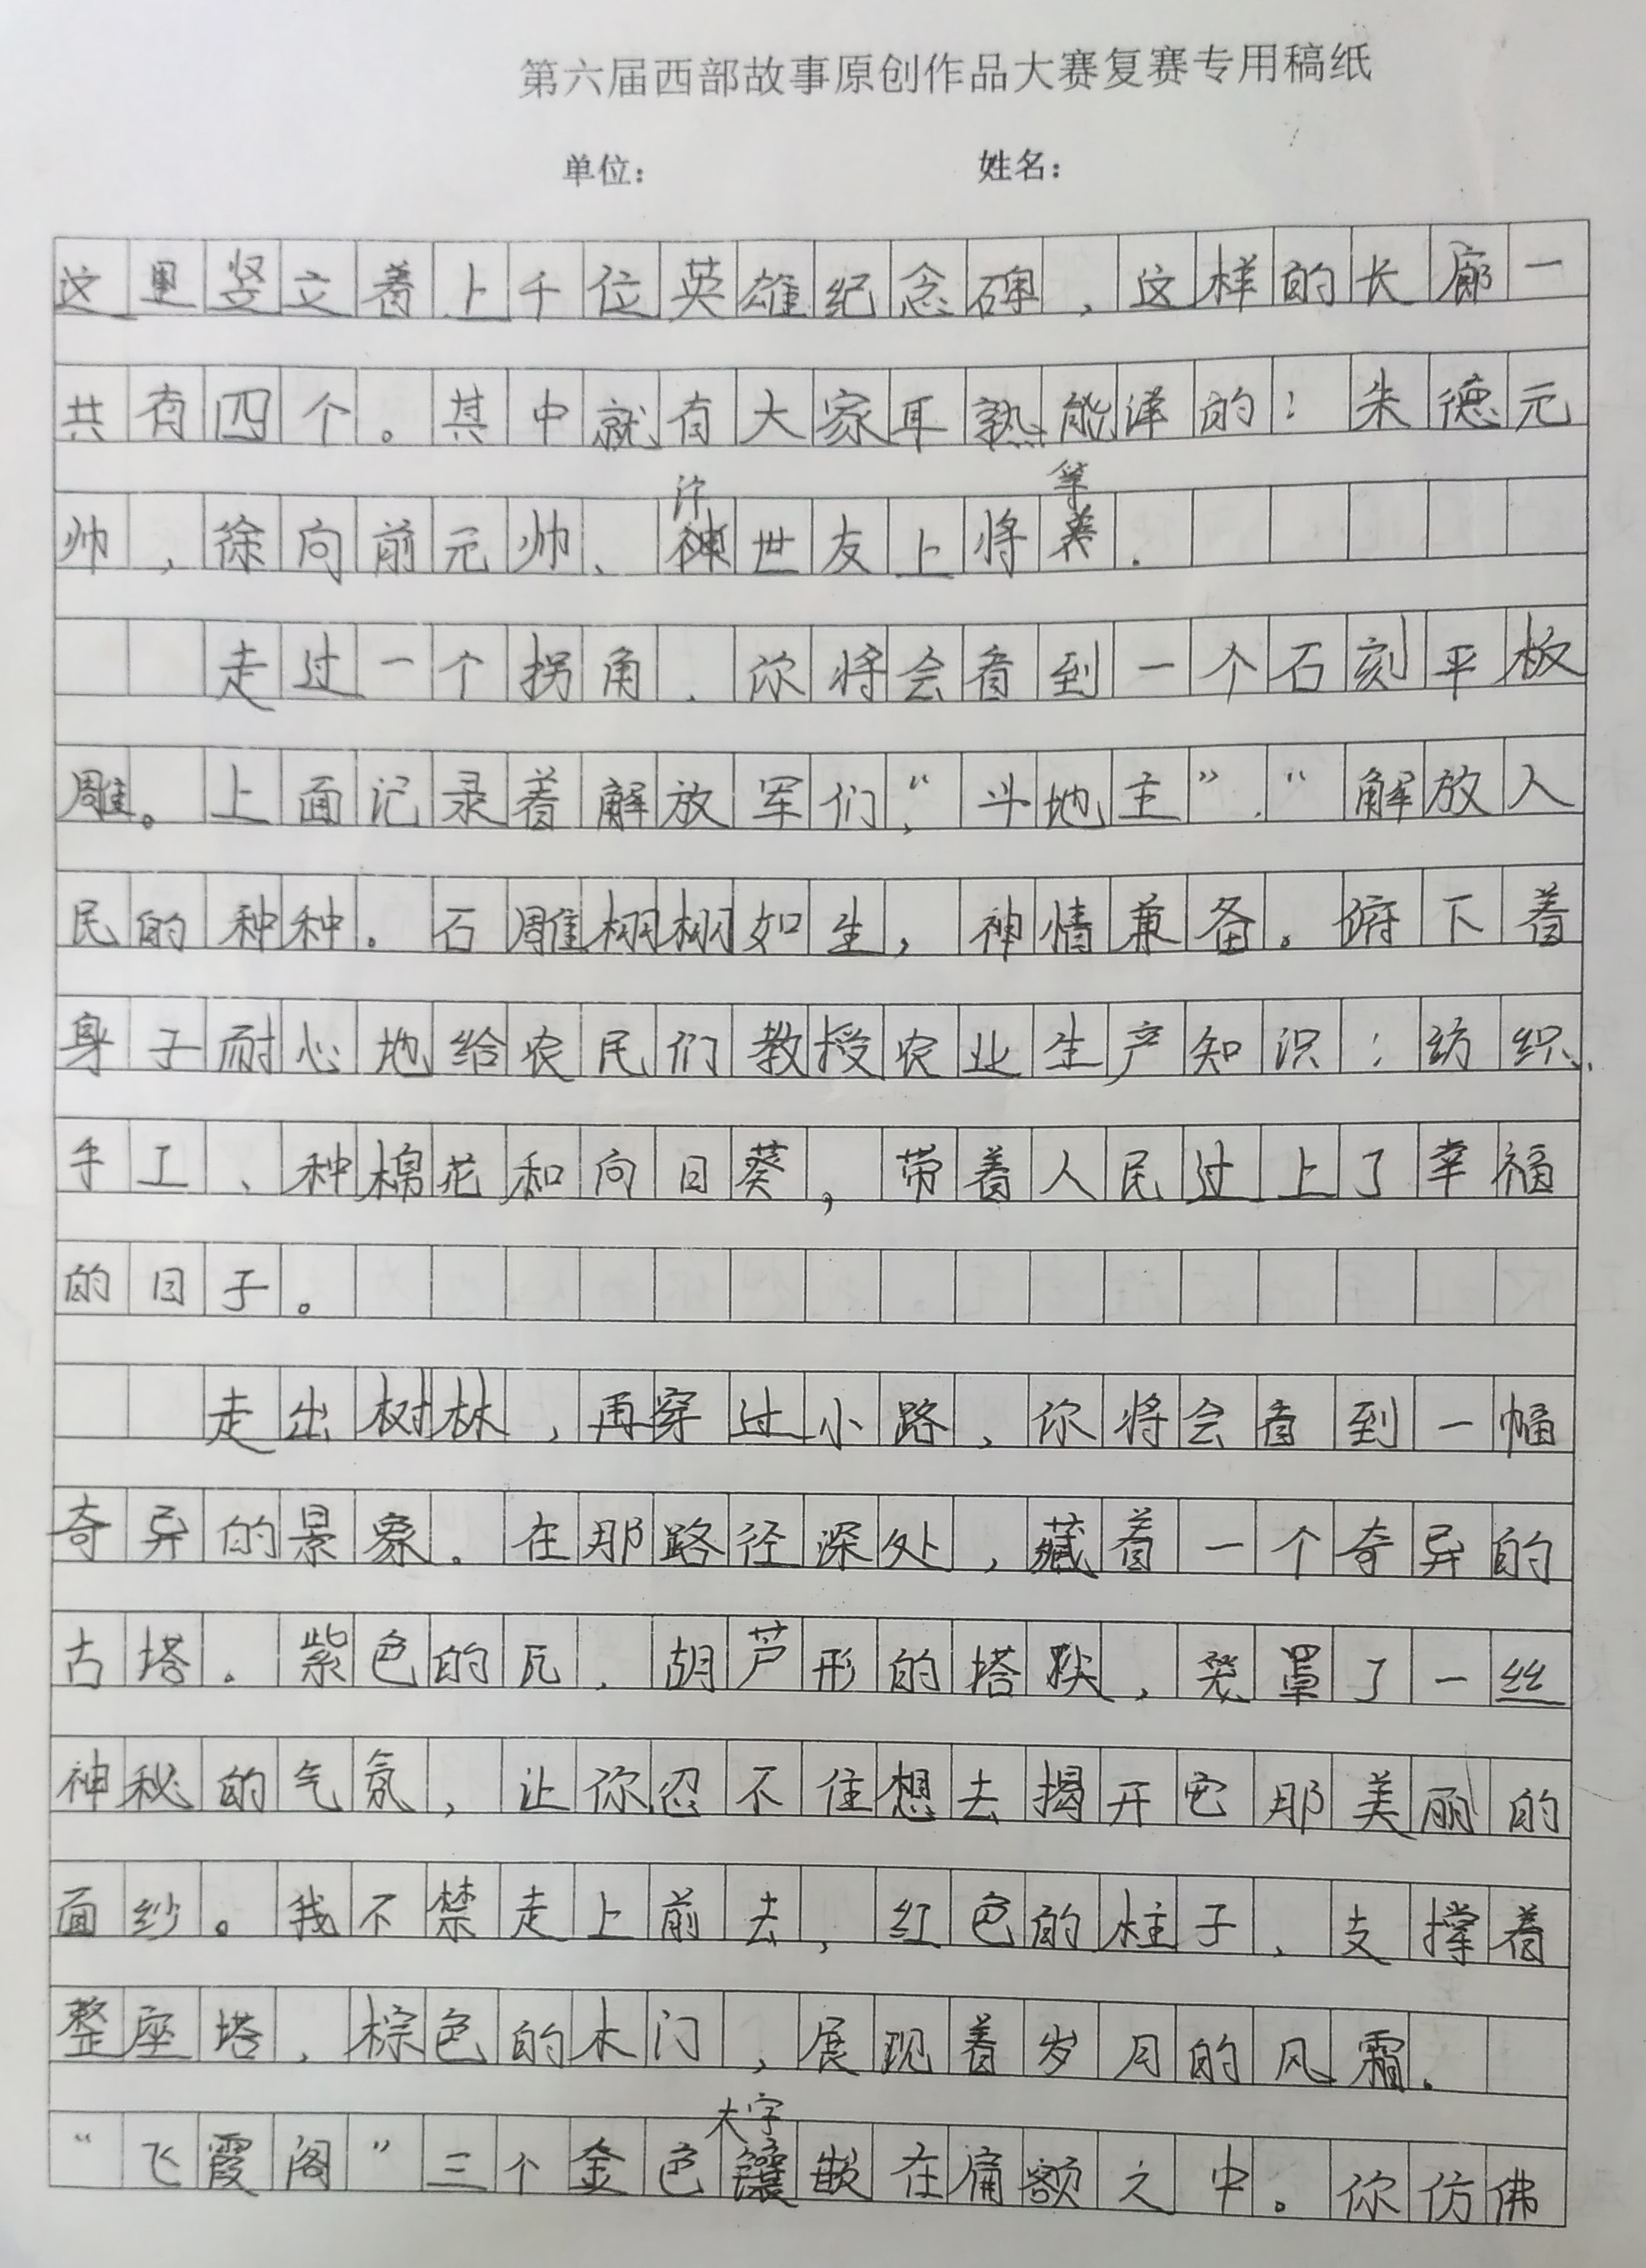 第六届西部故事原创作品大赛复赛专用稿纸
单位： 姓名：
这里竖立着上千位英雄纪念碑，这样的长廊一
共有四个。其中就有大家耳熟能详的：朱德元
帅，徐向前元帅、许世友上将等．
走过一个拐角．你将会看到一个石刻平板
雕。上面记录着解放军们，“斗地主”．“解放人
民的种种。石雕栩栩如生，神情兼备。俯下着
身子耐心地给农民们教授农业生产知识：纺织、
手工、种棉花和向日葵，带着人民过上了幸福
的日子。
走出树林，再穿过小路，你将会看到一幅
奇异的景象。在那路径深处，藏着一个奇异的
古塔。紫色的瓦．葫芦形的塔，罩了一丝
神秘的气氛，让你忍不住想去揭开它那美丽的
面纱。我不禁走上前去，红色的柱子，支撑着
整座塔，棕色的木门，展现着岁月的风霜。
“飞霞阁”三个金色大字镶嵌在额之中。你仿佛